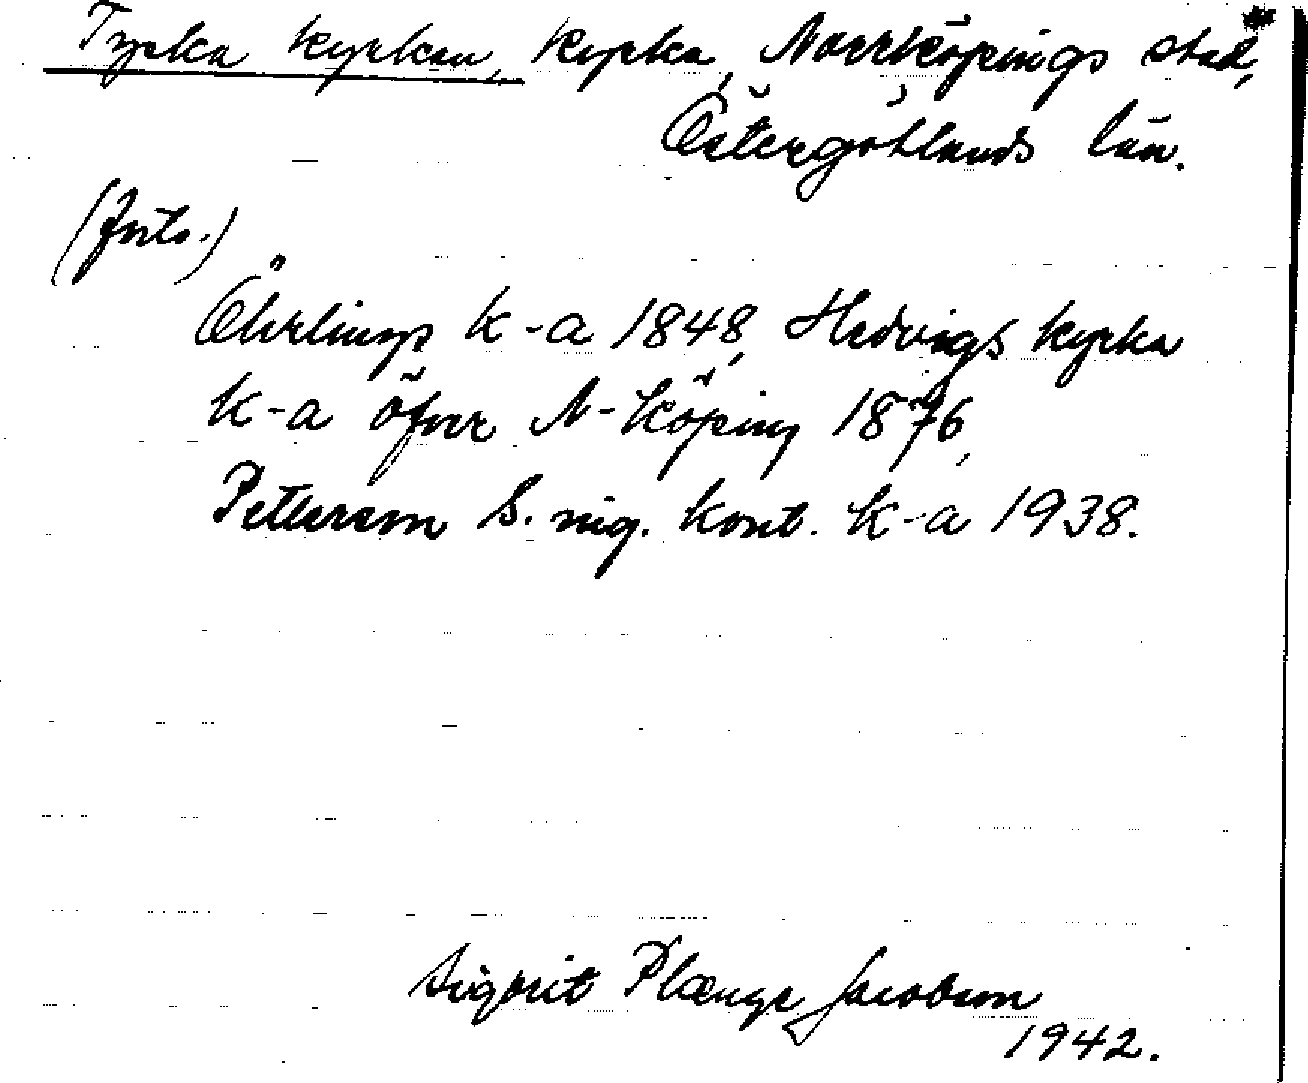 Tyska kyrkan, kyrka, Norrköpings stad,
Östergötlands län.
(forts.)
Öhrlings k-a 1848, Hedvigs kyrka
k-a öfver N-köping 1876,
Petterson S. nig. kont. k-a 1938.
Sigbrit Plænge Jacobson
1942.